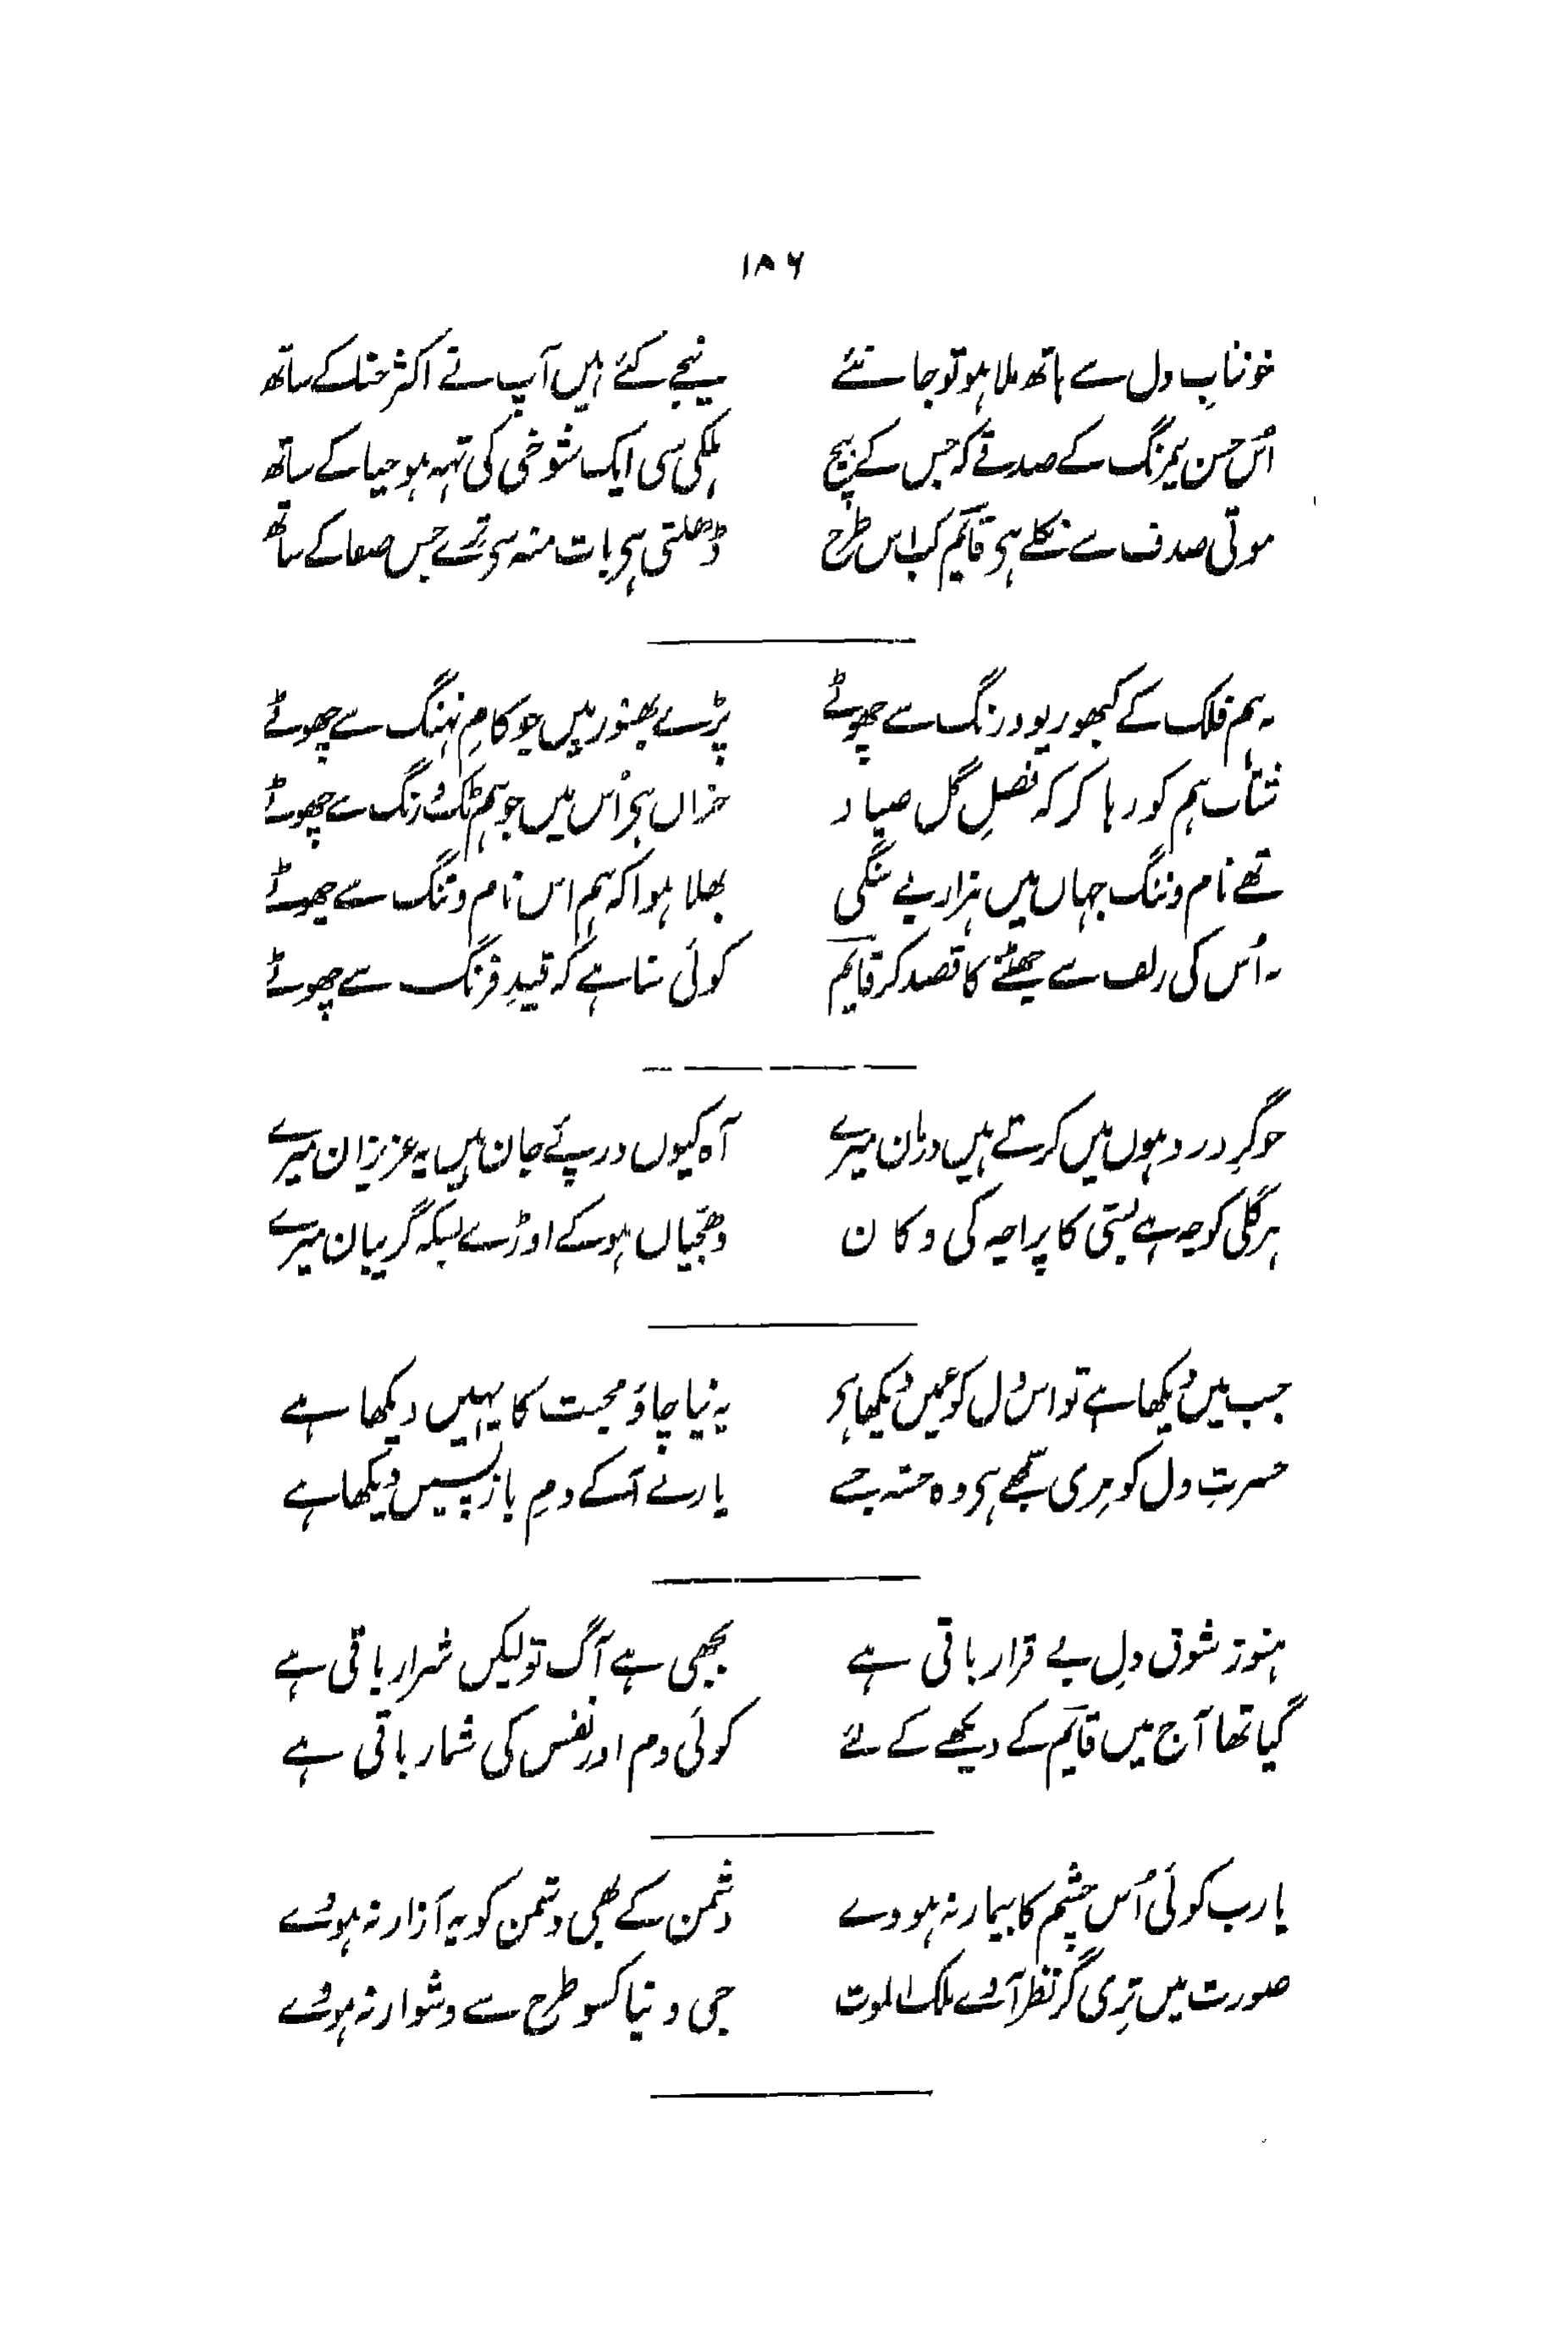 ۱۸۶
خوناب دل سے ہاتھ ملا ہو تو جانئے پنجے کئے ہیں آپ نے اکثر حنا کے ساتھ
اُس حسن نیمرنگ کے صدقے کہ جس کے بیچ ہلکی سی ایک شوخی کی تہہ ہو حیا کے ساتھ
موتی صدف سے نکلے ہی قایم کب اس طرح ڈھلتی ہی بات منہ سی ترے جس صفا کے ساتھ
نہ ہم فلک کے کبھو ریو و رنگ سے چھوٹے پڑے بھنور میں جو کامِ نہنگ سے چھوٹے
شتاب ہم کو رہا کر کہ فصلِ گل صیاد خزاں ہی اُس میں جو ہم ٹک درنگ سے چھوٹے
تھے نام و ننگ جہاں میں ہزار بے ننگی بھلا ہوا کہ ہم اس نام و ننگ سے چھوٹے
نہ اُس کی زلف سے چھٹنے کا قصد کر قایم کوئی سنا ہے کہ قیدِ فرنگ سے چھوٹے
خوگرِ درد ہوں میں کرتے ہیں درمان میرے آہ کیوں درپئے جان ہیں یہ عزیزان میرے
ہر گلی کوچہ ہے بستی کا پراچہ کی دکان دھجیاں ہو کے اوڑے بسکہ گریبان میرے
جب میں دیکھا ہے تو اس دل کو غمیں دیکھا ہی یہ نیا چاؤ محبت کا یہیں دیکھا ہے
حسرتِ دل کو مِری سمجھے ہی وہ خستہ جسے یار نے آ کے دمِ باز پسیں دیکھا ہے
ہنوز شوق دلِ بے قرار باقی ہے بجھی ہے آگ تو لیکن شرار باقی ہے
گیا تھا آج میں قایم کے دیکھنے کے لئے کوئی دم اور نفس کی شمار باقی ہے
یارب کوئی اُس چشم کا بیمار نہ ہووے دشمن کے بھی دشمن کو یہ آزار نہ ہووے
صورت میں تِری گر نظر آوے ملک الموت جی دینا کسو طرح سے دشوار نہ ہووے